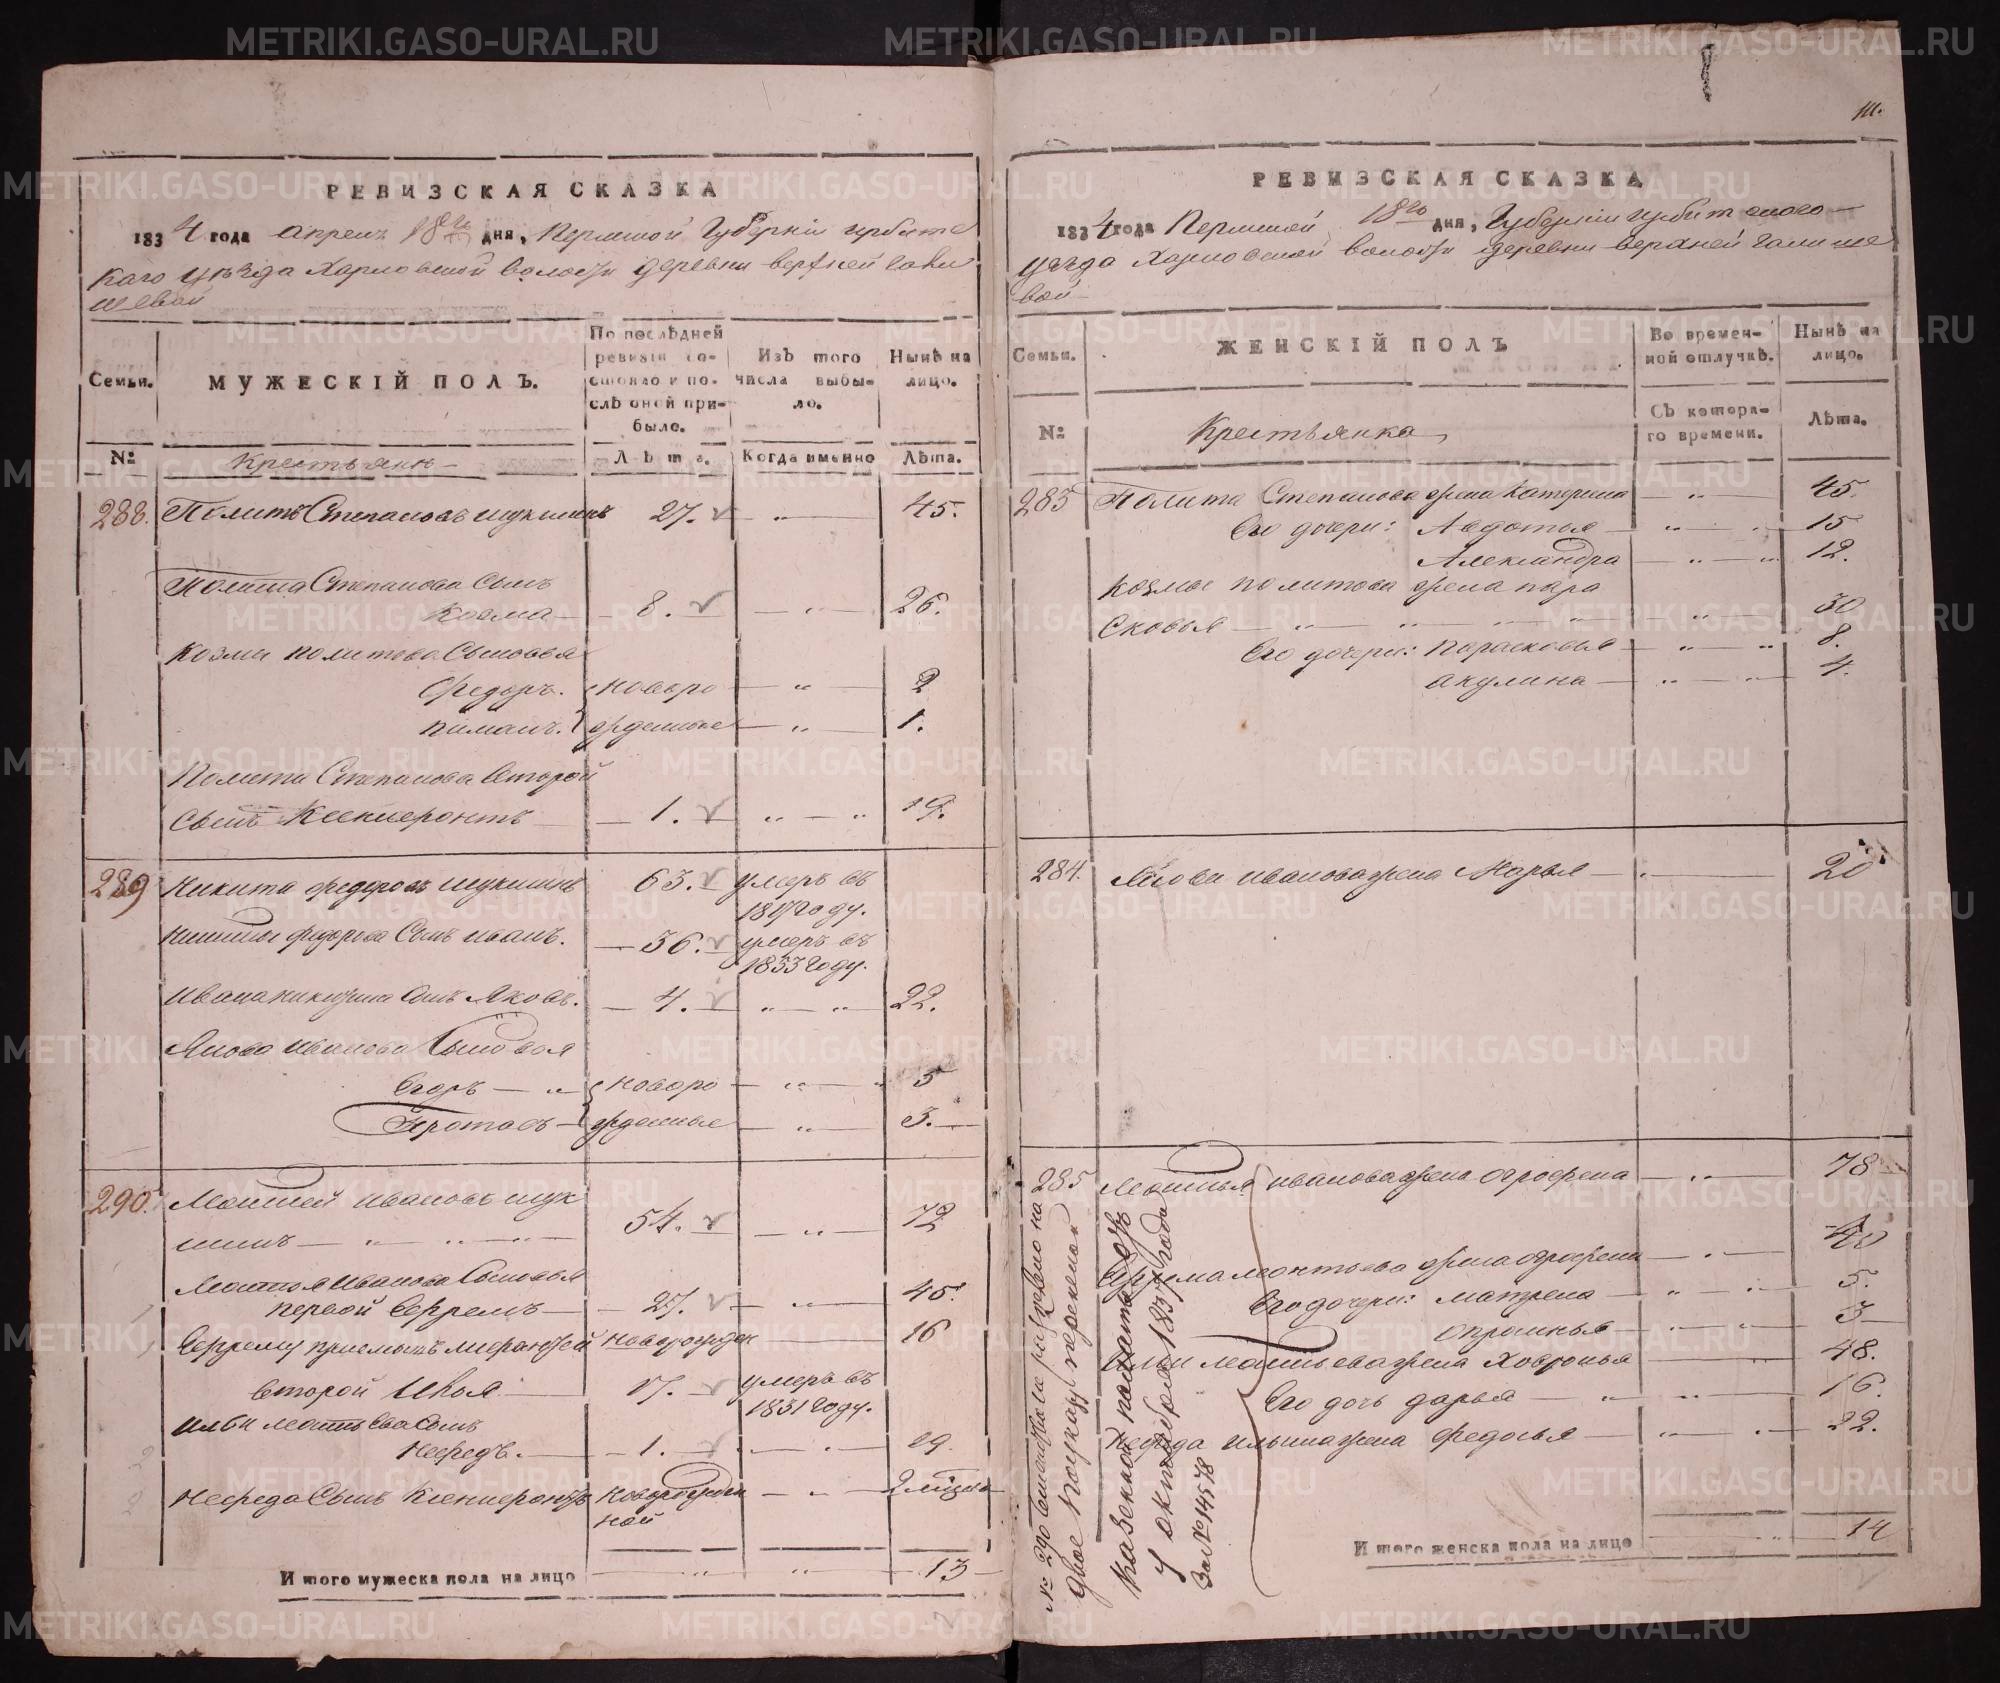 РЕВИЗСКАЯ СКАЗКА
1834 года апреля 18го дня, Пермской Губернiи ирбитс
каго уѣзда Харловской волости деревни верхней гани
шевой
Семьи.
МУЖЕСКIЙ ПОЛЪ.
По послѣдней ревизiи со-
стояло и по-
слѣ оной при-
было.
Изъ того
числа выбы-
ло.
Нынѣ на
лицо.
№
Крестьяне
Лѣта.
Когда именно
Лѣта.
288. Политъ Степановъ шукшинъ 27. 45.
Полита Степанова Сынъ
Козма 8. 26.
Козмы политова Сыновья
Федоръ. новоро 2
пиманъ. жденные 1.
Полита Степанова второй
Сынъ Ксенофонтъ 1. 19.
289 Никита федоровъ шукшинъ 63. умеръ въ
1819 году.
Никиты федорова Сынъ иванъ. 36. умеръ въ
1833 году.
Ивана никитина Сынъ Яковъ. 4. 22.
Якова иванова Сыновья
Егоръ новоро 5
Протасъ жденные 3.
290. Леонтей ивановъ шук
шинъ 54. 72
Леонтья иванова Сыновья
первой Ефремъ 27. 45.
Ефрему приемышъ новорожден 16
второй Илья 17. умеръ въ
1831 году.
ильи леонтьева Сынъ
Нефедъ. 1. 19.
Нефеда Сынъ Ксенофонтъ новорожден
ной 2 мѣсяц
Итого мужеска пола на лицо 13
111.
РЕВИЗСКАЯ СКАЗКА
1834 года Пермской 18го дня, Губернiи ирбитскаго
уѣзда Харловской волости деревни верхней ганише
вой
Семьи.
ЖЕНСКIЙ ПОЛЪ
Во времен-
ной отлучкѣ.
Нынѣ на
лицо.
№
Крестьянка
Съ котора-
го времени.
Лѣта.
283 Полита Степанова жена Катерина 45.
Его дочери: Авдотья 15
Александра 12.
Козмы политова жена пара
сковья 30
Его дочери: Парасковья 8.
акулина 4.
284. Якова иванова жена Марья 20
285 Леонтья иванова жена огрофена 78
Ефрема леонтьева жена огрофена 40
Его дочери: матрена 5.
3
Ильи леонтьева жена Ховронья 48.
Его дочь дарья 16.
Нефеда ильина жена федосья 22.
Итого женска пола на лицо 14
№ 290 на
двое по указу пермской
казенной палаты отъ
7 октября 1857 года
за № 14578
METRIKI.GASO-URAL.RU